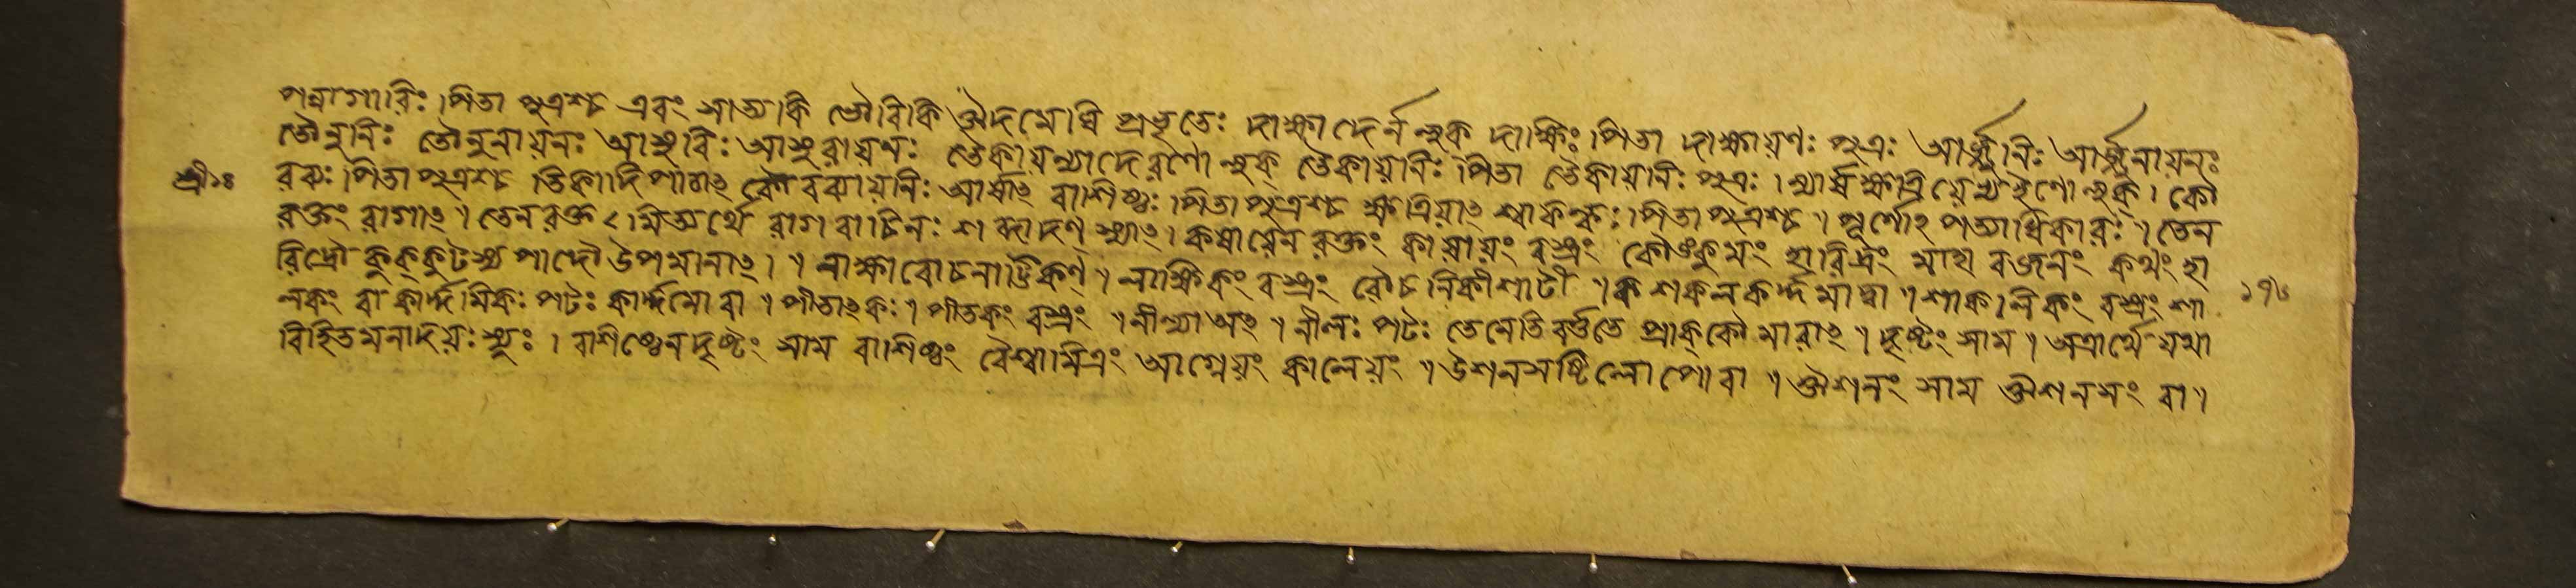 পন্নাগারিঃ। পিতা পুত্রশ্চ এবং সাত্যকি তৌবিকি ঔদমেঘি প্রভৃতেঃ দাক্ষাদের্ন লুক দাক্ষিঃ পিতা দাক্ষায়ণঃ পুত্রঃ আর্জ্জুনিঃ আর্জ্জুনায়নঃ
তৌলুনিঃ তৌলুনায়নঃ আসুরিঃ আসুরায়ণঃ তৈকায়ন্যাদেরণো লুক্ তৈকায়নিঃ পিতা তৈকায়নিঃ পুত্রঃ । ণ্যার্ষ ক্ষত্রিয়েভ্য ইণো লুক্ । কৌ
শ্রীঃ
রব্যঃ পিতা পুত্রশ্চ তিকাদিপাঠাৎ কৌরব্যায়নিঃ আর্ষাৎ বাশিষ্ঠঃ। পিতা পুত্রশ্চ ক্ষত্রিয়াৎ শ্বাফল্কঃ। পিতা পুত্রশ্চ । পূর্ণোঽপত্যাধিকারঃ । তেন
রক্তং রাগাৎ । তেন রক্তমিত্যর্থে রাগবাচিনঃ শব্দাদণ্ স্যাৎ। কষায়েন রক্তং কাষায়ং বস্ত্রং কৌঙ্কুমং হারিদ্রং মাহারজনং কথং হা
রিদ্রৌ কুক্কুটস্য পাদৌ উপমানাৎ। । লাক্ষারোচনাট্টিকণ্ । লাক্ষিকং বস্ত্রং রৌচনিকী শাটী । শকলকর্দ্দমাদ্বা । শাকলিকং বস্ত্রং শা
লকং বা কার্দ্দমিকঃ পটঃ কার্দ্দমো বা । পীতাৎকঃ। পীতকং বস্ত্রং । নীল্যা অৎ । নীলঃ পটঃ তেনেতি বর্ত্ততে প্রাক্ কৌমারাৎ । দৃষ্টং সাম । অত্রার্থে যথা
১৭৬
বিহিতমনাদয়ঃ স্যুঃ । বাশিষ্ঠেন দৃষ্টং সাম বাশিষ্ঠং বৈশ্বামিত্রং আগ্নেয়ং কালেয়ং । উশনসষ্টিলোপো বা । ঔশনং সাম ঔশনসং বা ।